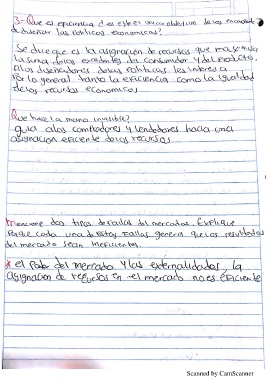 3-Que es eficiencia ¿es este el unico objetivo de los encargados
de diseñar las politicas economicas?
Se dice que es la asignacion de recursos que maximiza
la suma de los exedentes del consumidor y del producto.
A los diseñadores de las politicas les interesa
Por lo general tanto la eficiencia como la igualdad
de los recursos economicos
Que hace la mano invisible?
guia a los compradores y vendedores hacia una
asignacion eficiente de los recursos
Mencione dos tipos de fallas del mercado. Explique
Porque cada una de estas fallas genera que los resultados
del mercado sean ineficientes.
el Poder del mercado y las externalidades, la
asignacion de recursos en el mercado no es eficiente
Scanned by CamScanner